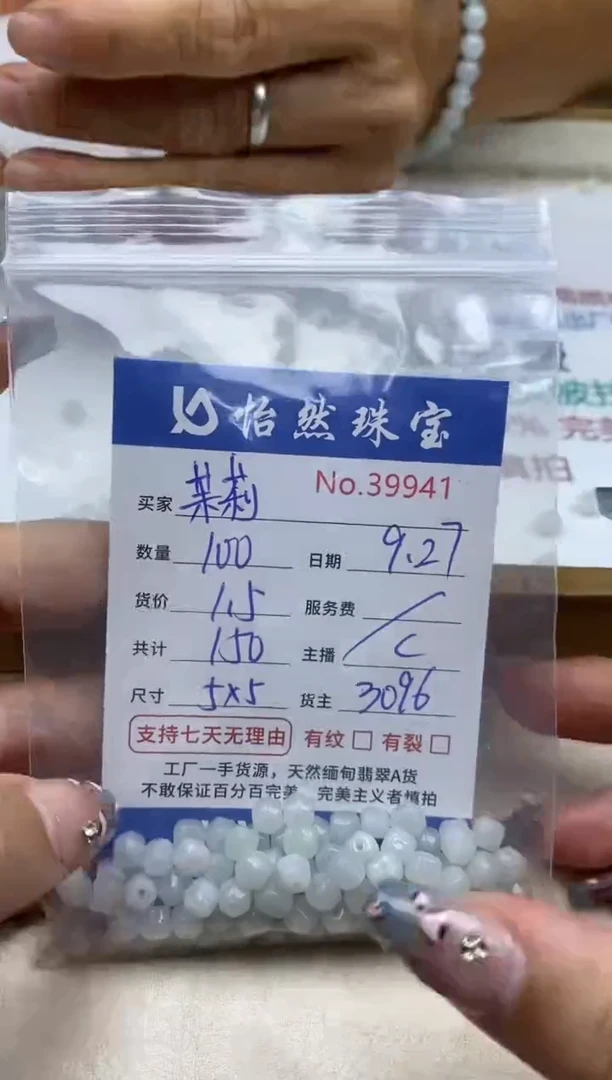 怡然珠宝
No.39941
买家 茉莉
数量 100 日期 9.27
货价 1.5 服务费 /
共计 150 主播 C
尺寸 5x5 货主 3096
支持七天无理由 有纹 □ 有裂 □
工厂一手货源，天然缅甸翡翠A货
不敢保证百分百完美，完美主义者慎拍
% 完
慎拍